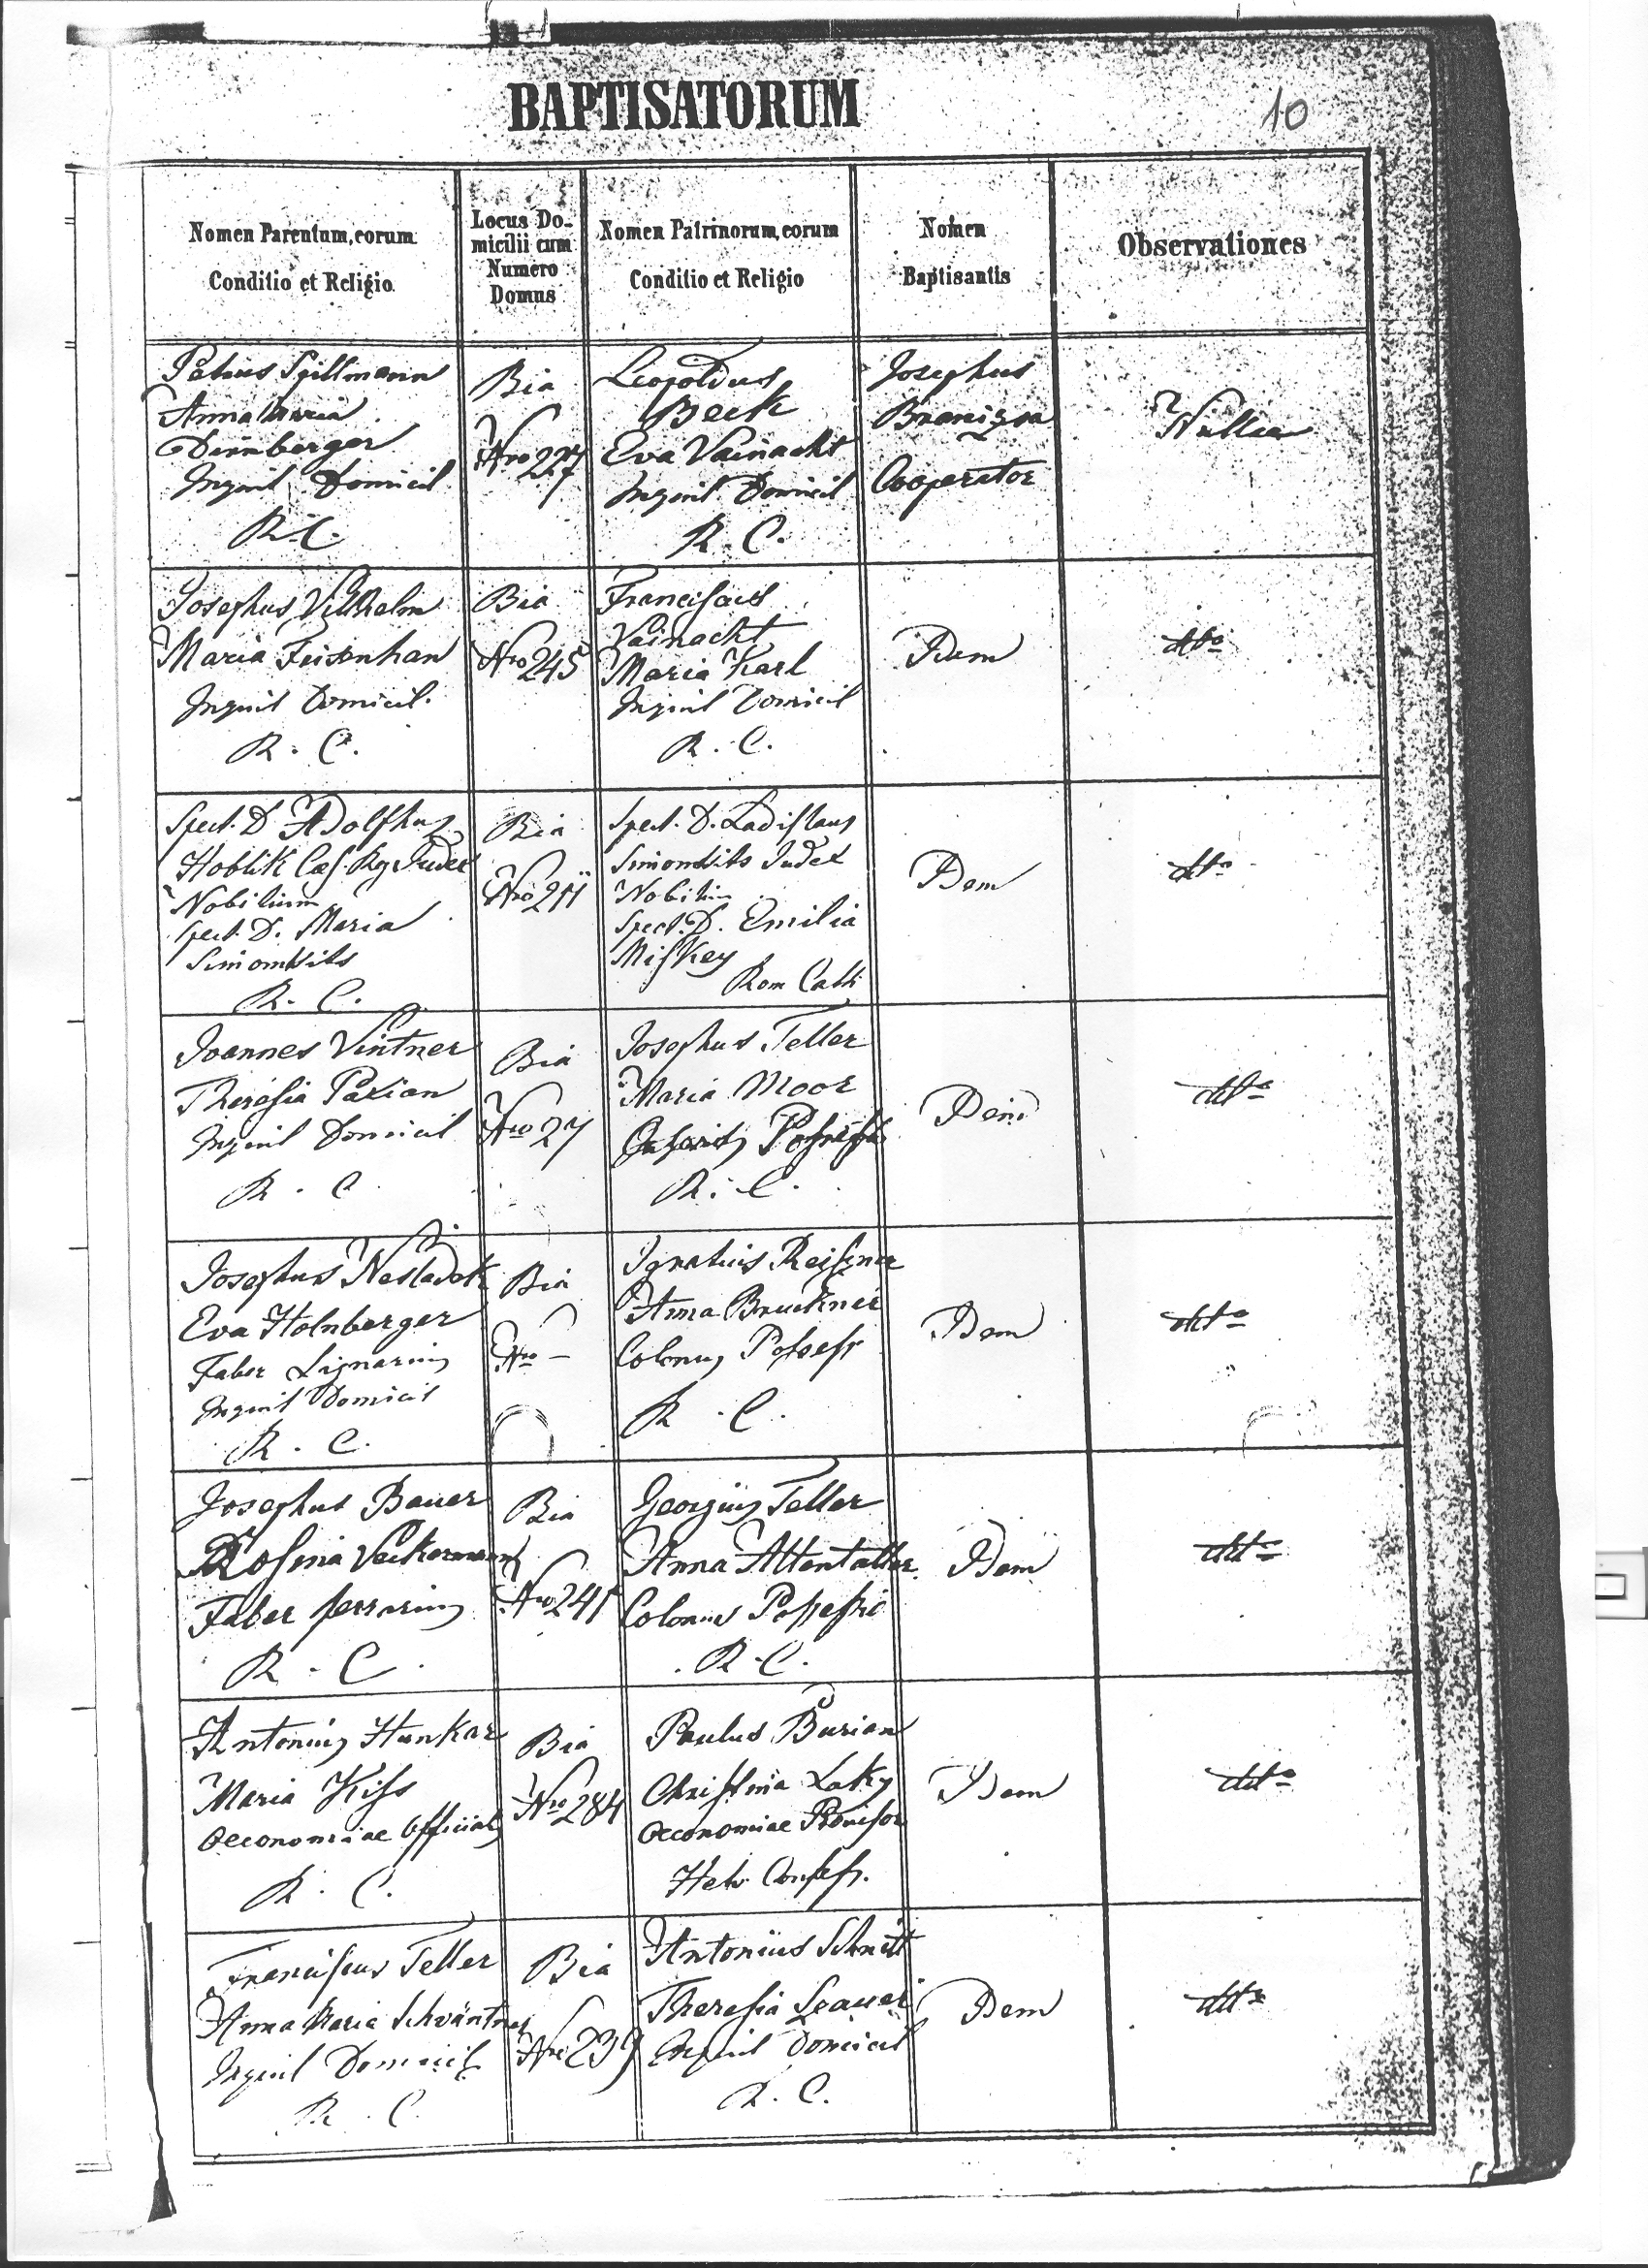 BAPTISATORUM
10
Nomen Parentum, eorum
Conditio et Religio
Locus Do-
micilii cum
Numero
Domus
Nomen Patrinorum, eorum
Conditio et Religio
Nomen
Baptisantis
Observationes
Spillmann
Anna Maria
Dirnberger
Inquil Domicil
R. C.
Bia
Nro 227
Leopoldus
Beck
Eva Vainacht
Inquil Domicil
R. C.
Josephus
Cooperator
Nullae
Josephus Vilhelm
Maria Feisenhan
Inquil Domicil.
R. C.
Bia
Nro 245
Franciscus
Vainacht
Maria Karl
Inquil Domicil
R. C.
Idem
dtto
Spect. D. Adolfhus
Hoblik Caes. Rg Judex
Nobilium
Spect. D. Maria
Simontsits
R. C.
Bia
Nro 211
Spect. D. Ladislaus
Simontsits Judex
Nobilium
Spect. D. Emilia
Miskey
Rom Cath
Idem
dtto
Joannes Vintner
Theresia Paxian
Inquil Domicil
R. C.
Bia
Nro 27
Josephus Teller
Maria Moor
R. C.
Idem
dtto
Josephus Nesladek
Eva Holnberger
Faber Lignarius
Inquil Domicil
R. C.
Bia
Nro —
Ignatius
Anna Bruckner
Colonus Possess
R. C.
Idem
dtto
Josephus Bauer
Rosina Veikermann
Faber ferrarius
R. C.
Bia
Nro 241
Georgius Teller
Anna Attentaller
Colonus
R. C.
Idem
dtto
Antonius Hunkar
Maria Kiss
Oeconomiae Officialis
R. C.
Bia
Nro 284
Paulus Burian
Christina Laky
Oeconomiae Provisor
Helv. Confess.
Idem
dtto
Franciscus Teller
Anna Maria Schvantner
Inquil Domicil
R. C.
Bia
Nro 239
Antonius Schnitt
Theresia
Inquil Domicil
R. C.
Idem
dtto